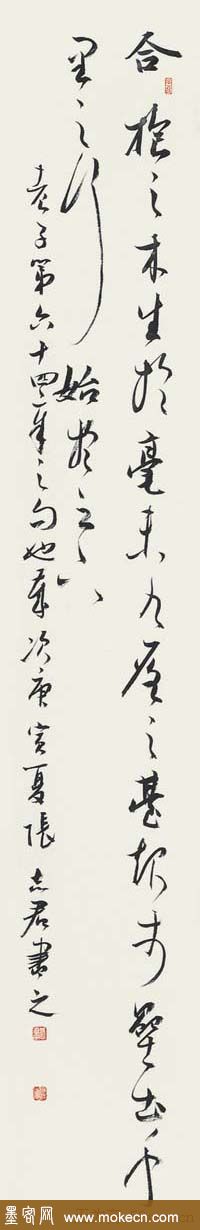 合抱之木生於毫末九層之臺起於壘土千
里之行始於足下
老子第六十四章之句也歲次庚寅夏張志君書之
墨客网 www.mokecn.com